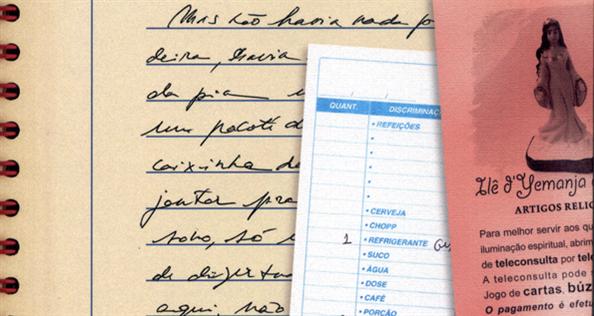 Mas não havia nada
deira, havia
da pia
um pacote d
caixinha de
jantar pra
só
de
aqui, não
QUANT.
DISCRIMINAÇ
• REFEIÇÕES
•
•
•
•
•
• CERVEJA
• CHOPP
1 • REFRIGERANTE
• SUCO
• ÁGUA
• DOSE
• CAFÉ
• PORÇÃO
Ilê d'Yemanja
ARTIGOS RELIG
Para melhor servir aos qu
iluminação espiritual, abrim
de teleconsulta por tele
A teleconsulta pode s
Jogo de cartas, búz
O pagamento é efetu